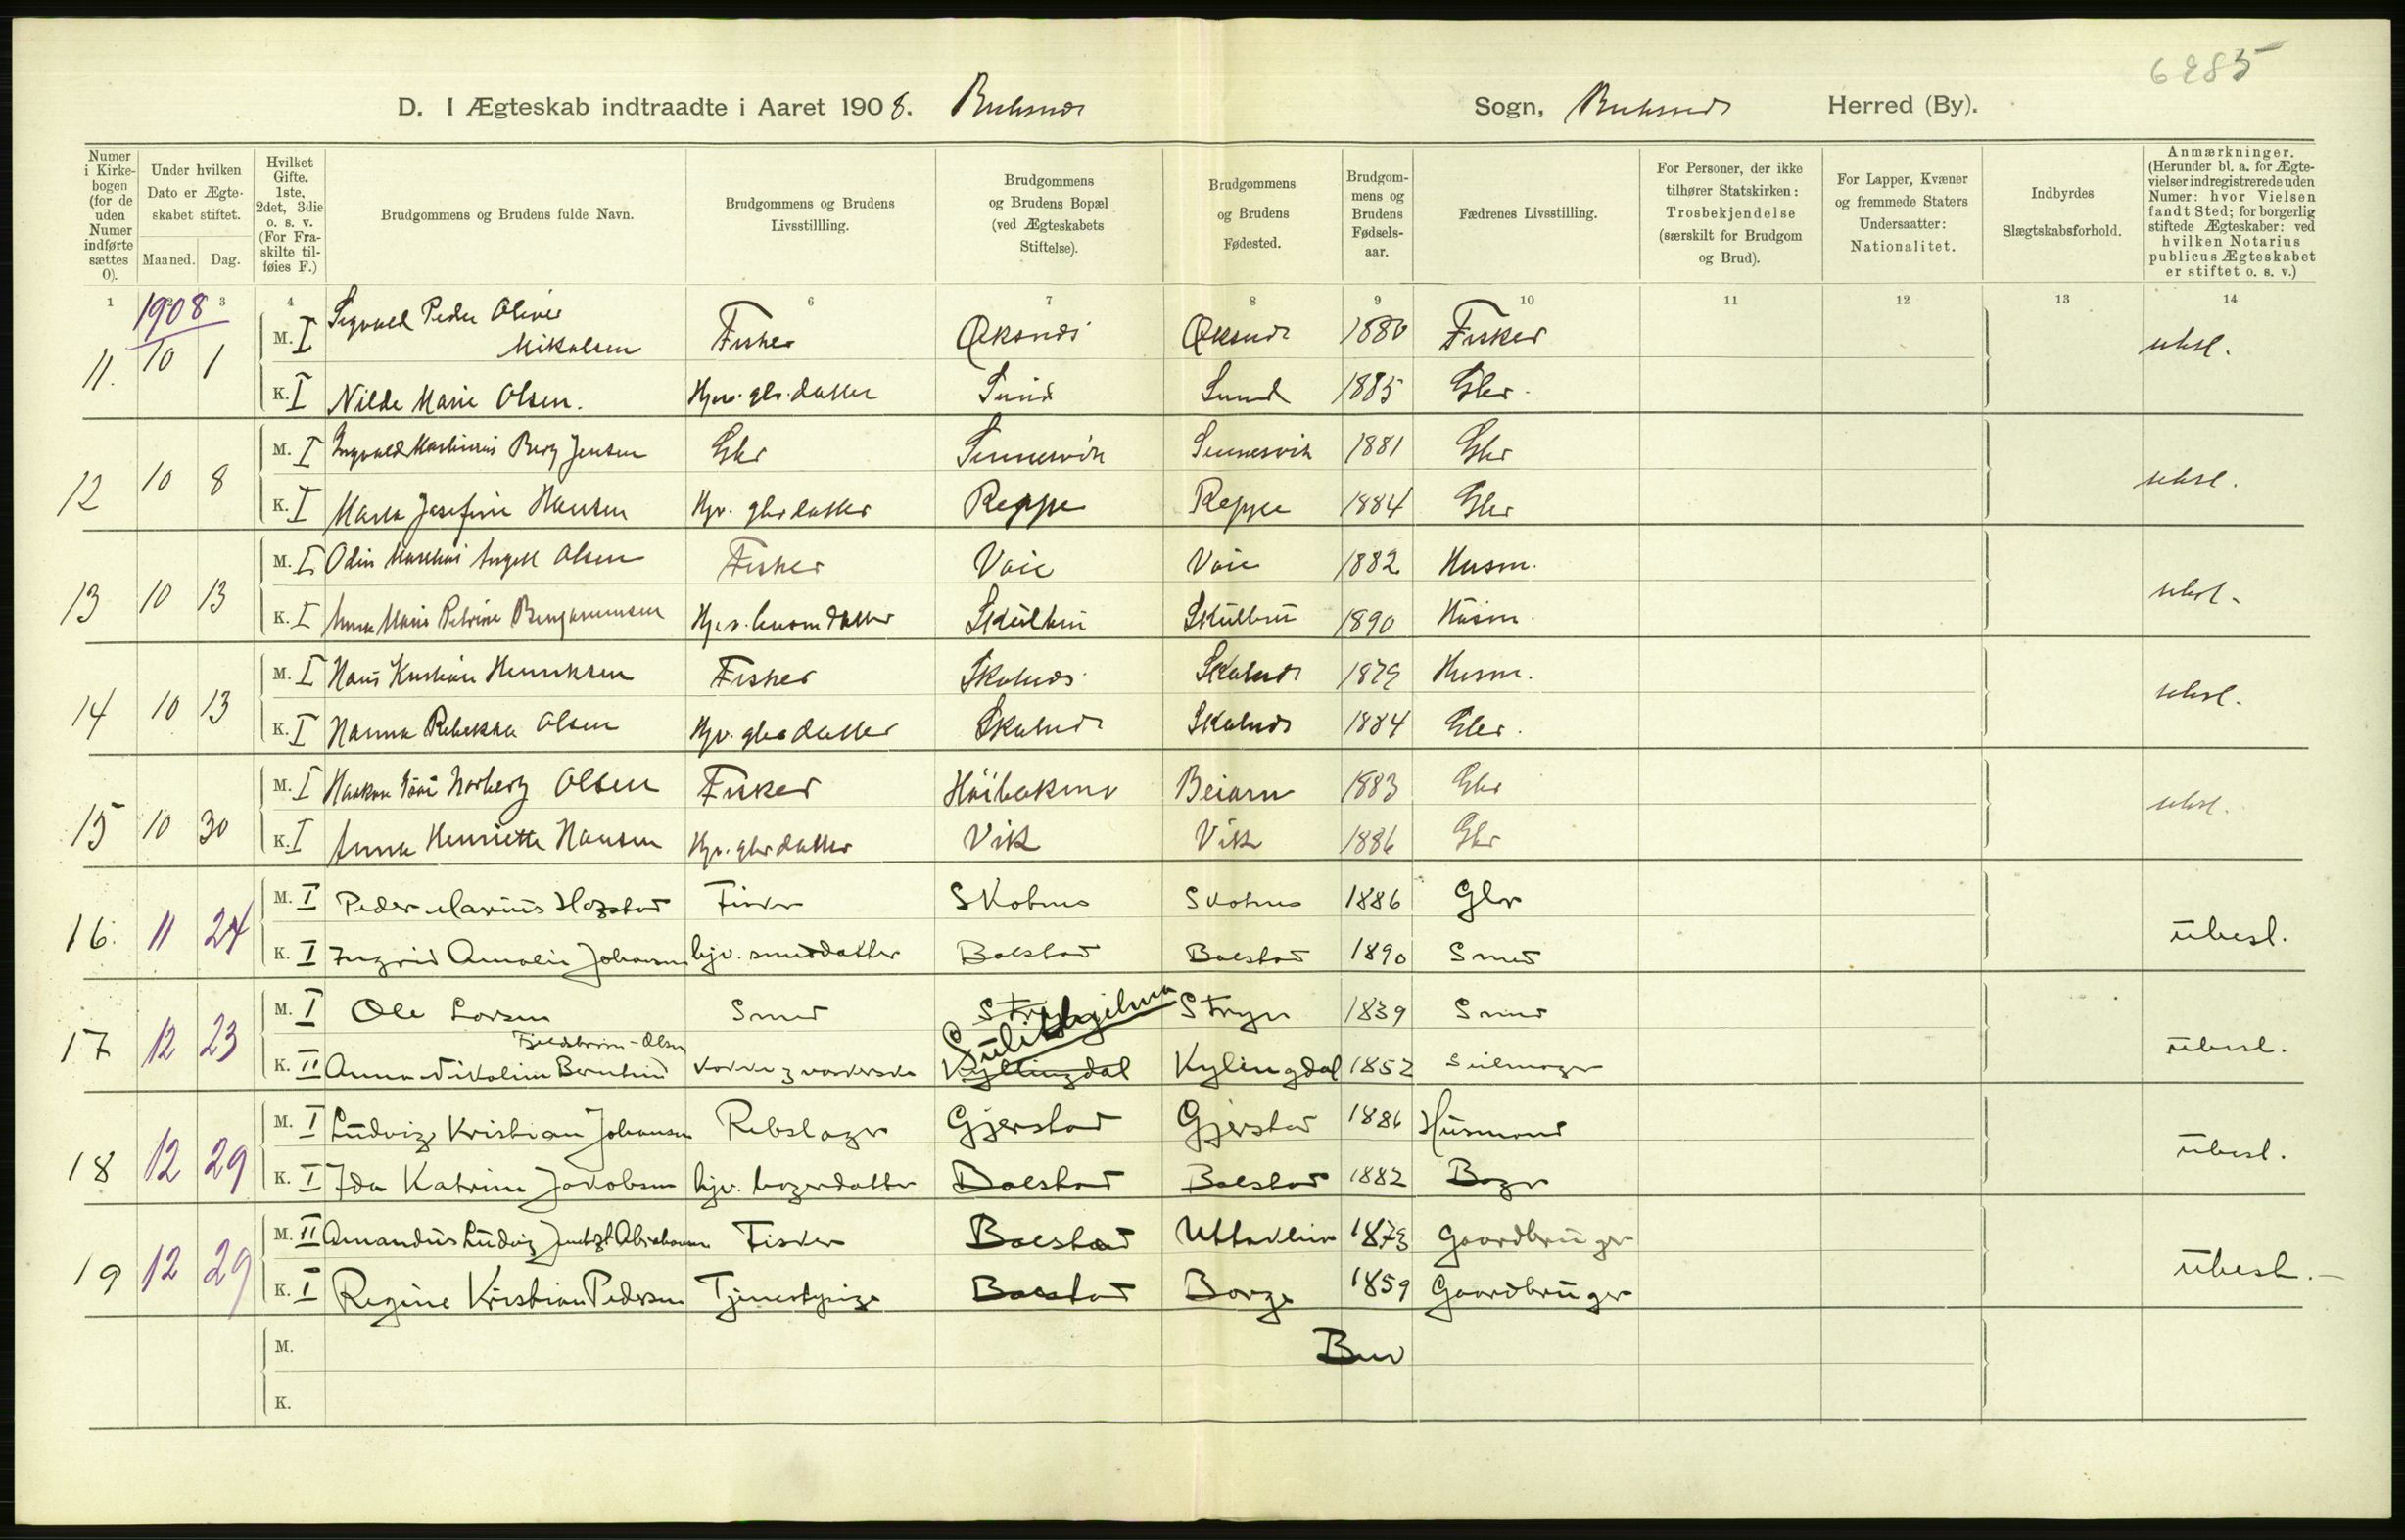 6285
D. I Ægteskab indtraadte i Aaret 1908. Buksnes Sogn, Buksnes Herred (By).
Numer i Kirkebogen (for de uden Numer indførte sættes 0).
Under hvilken Dato er Ægteskabet stiftet.
Maaned. Dag.
Hvilket Gifte. 1ste, 2det, 3die o. s. v. (For Fraskilte tilføies F.)
Brudgommens og Brudens fulde Navn.
Brudgommens og Brudens Livsstillling.
Brudgommens og Brudens Bopæl (ved Ægteskabets Stiftelse).
Brudgommens og Brudens Fødested.
Brudgommens og Brudens Fødselsaar.
Fædrenes Livsstilling.
For Personer, der ikke tilhører Statskirken: Trosbekjendelse (særskilt for Brudgom og Brud).
For Lapper, Kvæner og fremmede Staters Undersaatter: Nationalitet.
Indbyrdes Slægtskabsforhold.
Anmærkninger. (Herunder bl. a. for Ægtevielser indregistrerede uden Numer: hvor Vielsen fandt Sted; for borgerlig stiftede Ægteskaber: ved hvilken Notarius publicus Ægteskabet er stiftet o. s. v.)
1 2 3 4 6 7 8 9 10 11 12 13 14
1908
11. 10 1 M. I Sigvald Peder Oliver Mikalsen Fisker Øksnes Øksnes 1880 Fisker ubesl.
K. I Nilde Marie Olsen. Hjv. gbr. datter Sund Sund 1885 Gbr.
12 10 8 M. I Ingvald Martinius Berg Jensen Gbr Sennesvik Sennesvik 1881 Gbr ubesl.
K. I Marta Josefine Hansen Hjv. gbr datter Reppe Reppe 1884 Gbr
13 10 13 M. I Odin Olsen Fisker Voie Voie 1882 Husm. ubesl.
K. I Anna Marie Petrine Benjaminsen Hjv. husm datter Skulbru Skulbru 1890 Husm.
14 10 13 M. I Hans Kristian Henriksen Fisker Skotnes Skotnes 1879 Husm. ubesl.
K. I Hanna Rebekka Olsen Hjv. gbr datter Skotnes Skotnes 1884 Gbr.
15 10 30 M. I Haakon Norberg Olsen Fisker Höibakken Beiarn 1883 Gbr ubesl.
K. I Anna Henriette Hansen Hjv. gbr datter Vik Vik 1886 Gbr
16. 11 24 M. I Peder Marius Hogstad Fisker Skotnes Skotnes 1886 Gbr ubesl.
K. I Ingrid Amalie Johansen hjv. smeddatter Bolstad Bolstad 1890 Smed
17 12 23 M. I Ole Larsen Smed Stryn Sulitjelma Stryn 1839 Smed ubesl.
K. II Anna Nikoline Bernhine Fjeldstrøm-Olsen Kokke g vaskerske Kyllingdal Kylingdal 1852 Seilmager
18 12 29 M. I Ludvig Kristian Johansen Rebslager Gjerstad Gjerstad 1886 Husmand ubesl.
K. I Ida Katrine Jakobsen hjv. bagerdatter Bolstad Bolstad 1882 Bager
19 12 29 M. II Amandus Ludvig Abrahamsen Fisker Bolstad Uttakleiv 1873 Gaardbruger ubesl.
K. I Regine Kristian Pedersen Tjenestepige Bolstad Borge 1859 Gaardbruger
M.
K.